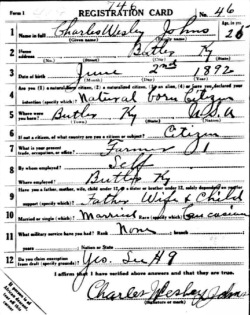 Form 1 REGISTRATION CARD No. 46
1 Name in full Charles Wesley Johns Age, in yrs. 25
(Given name) (Family name)
2 Home address Butler Ky
3 Date of birth June 2nd 1892
(Month) (Day) (Year)
4 Are you (1) a natural-born citizen, (2) a naturalized citizen, (3) an alien, (4) or have you declared your intention (specify which)? Natural born Citizen
5 Where were you born? Butler Ky U.S.A
6 If not a citizen, of what country are you a citizen or subject? Citizen
7 What is your present trade, occupation, or office? Farmer
8 By whom employed? Self
Where employed? Butler Ky
9 Have you a father, mother, wife, child under 12, or a sister or brother under 12, solely dependent on you for support (specify which)? Father Wife & Child
10 Married or single (which)? Married Race (specify which)? Caucasian
11 What military service have you had? Rank None
years Nation or State
12 Do you claim exemption from draft (specify grounds)? Yes. See H 9
I affirm that I have verified above answers and that they are true.
Charles Wesley Johns
(Signature or mark)